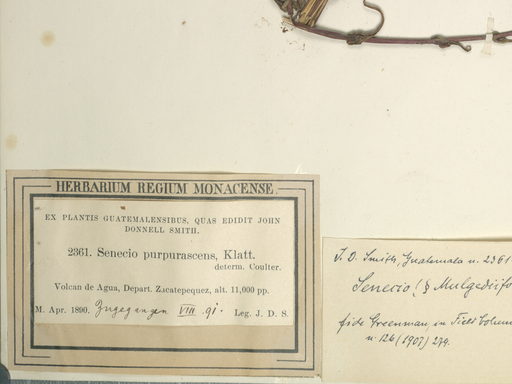 HERBARIUM REGIUM MONACENSE.
EX PLANTIS GUATEMALENSIBUS, QUAS EDIDIT JOHN
DONNELL SMITH.
2361. Senecio purpurascens, Klatt.
determ. Coulter.
Volcan de Agua, Depart. Zacatepequez, alt. 11,000 pp.
M. Apr. 1890. Zugegangen VIII. 91. Leg. J. D. S.
J. D. Smith, Guatemala n. 2361
Senecio (§ Mulgediifo
fide Greenman, in Field Colum
n. 126 (1907) 279.